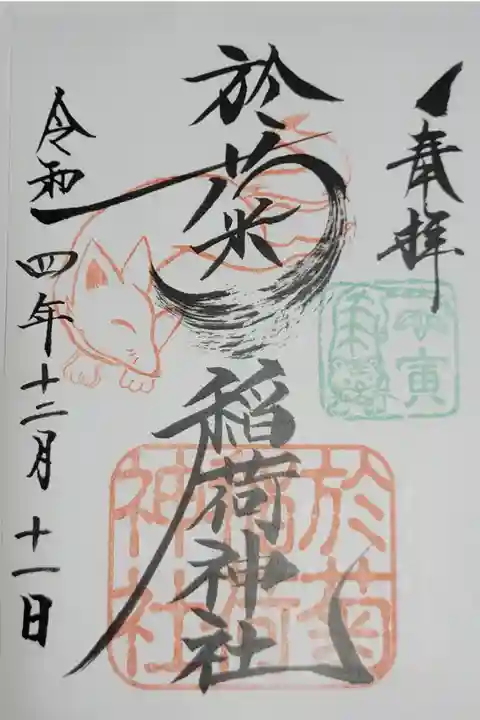 奉拝
於菊稲荷神社
於菊
稲荷
神社
令和四年十二月十一日